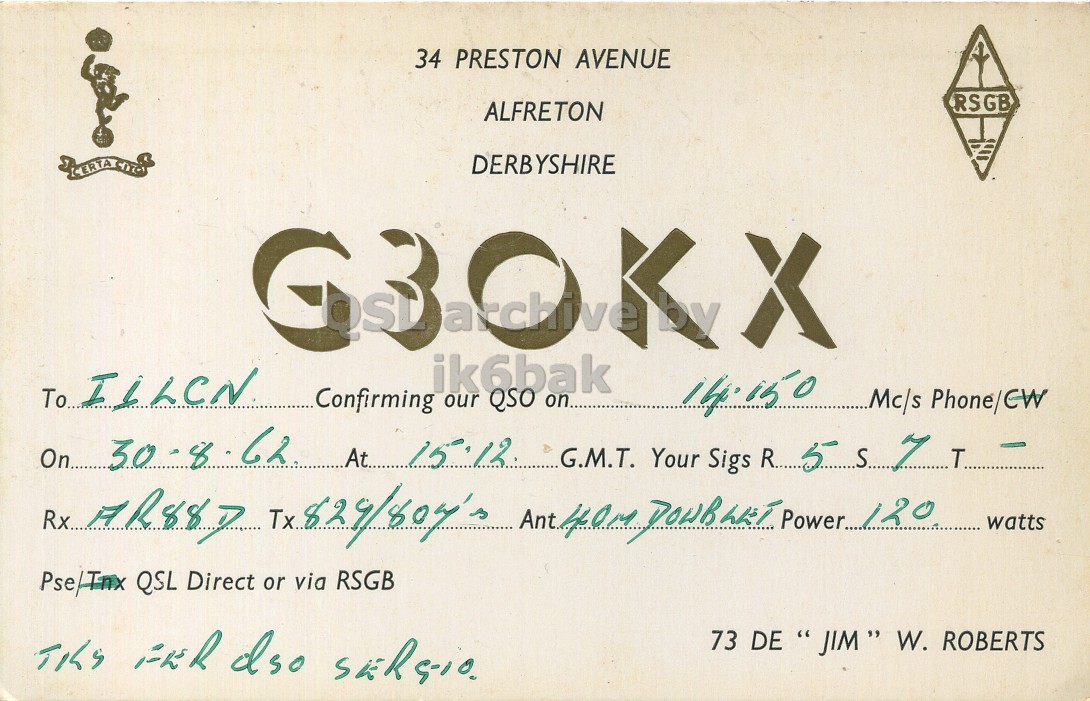 34 PRESTON AVENUE
ALFRETON
DERBYSHIRE
CERTA CITO
RSGB
G3OKX
QSL archive by
ik6bak
To I1LCN. Confirming our QSO on 14.150 Mc/s Phone/CW
On 30-8-62. At 15.12. G.M.T. Your Sigs R 5 S 7 T -
Rx AR88D Tx 829/807's Ant 40M DOUBLET Power 120. watts
Pse/Tnx QSL Direct or via RSGB
73 DE "JIM" W. ROBERTS
TKS FER QSO SERGIO.